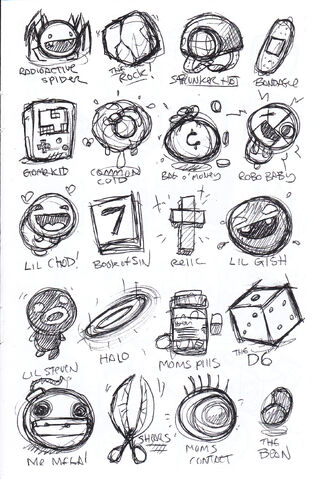 RADIOACTIVE
SPIDER
THE
ROCK!
BANDAGE
GAMEKID
COMMON
COLD
¢
BAG O' MONEY
ROBO BABY
LIL CHAD!
7
BOOK OF SIN
RELIC
LIL GISH
LIL STEVEN
HALO
MOMS PILLS
THE D6
MR MEGA!
SHEARS
MOMS
CONTACT
THE
BEAN